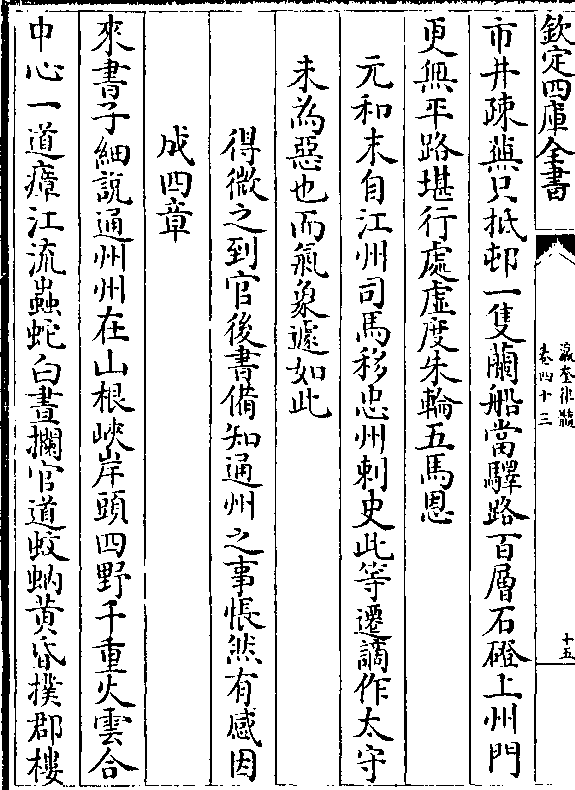 欽定四庫全書
瀛奎律髓
卷四十三
十五
市井疎蕪只抵邨一隻蘭船當驛路百層石磴上州門
更無平路堪行處虛度朱輪五馬恩
元和末自江州司馬移忠州刺史此等遷謫作太守
未為惡也而氣象遽如此
得微之到官後書備知通州之事悵然有感因
成四章
來書子細說通州州在山根峽岸頭四野千重火雲合
中心一道瘴江流蟲蛇白晝攔官道蚊蚋黄昏撲郡樓